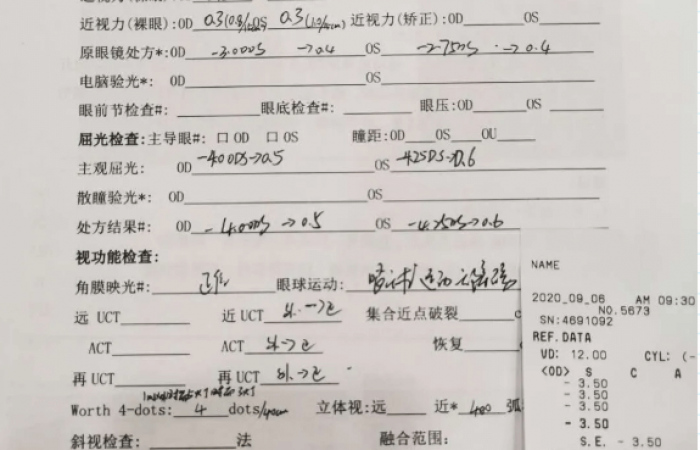 近视力(裸眼):OD 0.3 OS 0.3 近视力(矫正):OD OS
原眼镜处方*:OD -3.00DS →0.4 OS -2.75DS →0.4
电脑验光*: OD OS
眼前节检查#: 眼底检查#: 眼压:OD OS
屈光检查:主导眼#: 口 OD 口 OS 瞳距:OD OS OU
主观屈光: OD -4.00DS→0.5 OS -4.25DS→0.6
散瞳验光*: OD OS
处方结果#: OD -4.00DS →0.5 OS -4.25DS →0.6
视功能检查:
角膜映光#: 正位 眼球运动:
远 UCT 近 UCT 外→正 集合近点破裂
ACT ACT 外→正 恢复
再 UCT 再 UCT 外→正
Worth 4-dots: 4 dots/40cm 立体视:远 近* 400 弧
斜视检查: 法 融合范围:
NAME
2020_09_06 AM 09:30
NO.5673
SN:4691092
REF.DATA
VD: 12.00 CYL: (-
<OD> S C A
- 3.50
- 3.50
- 3.50
- 3.50
S.E. - 3.50